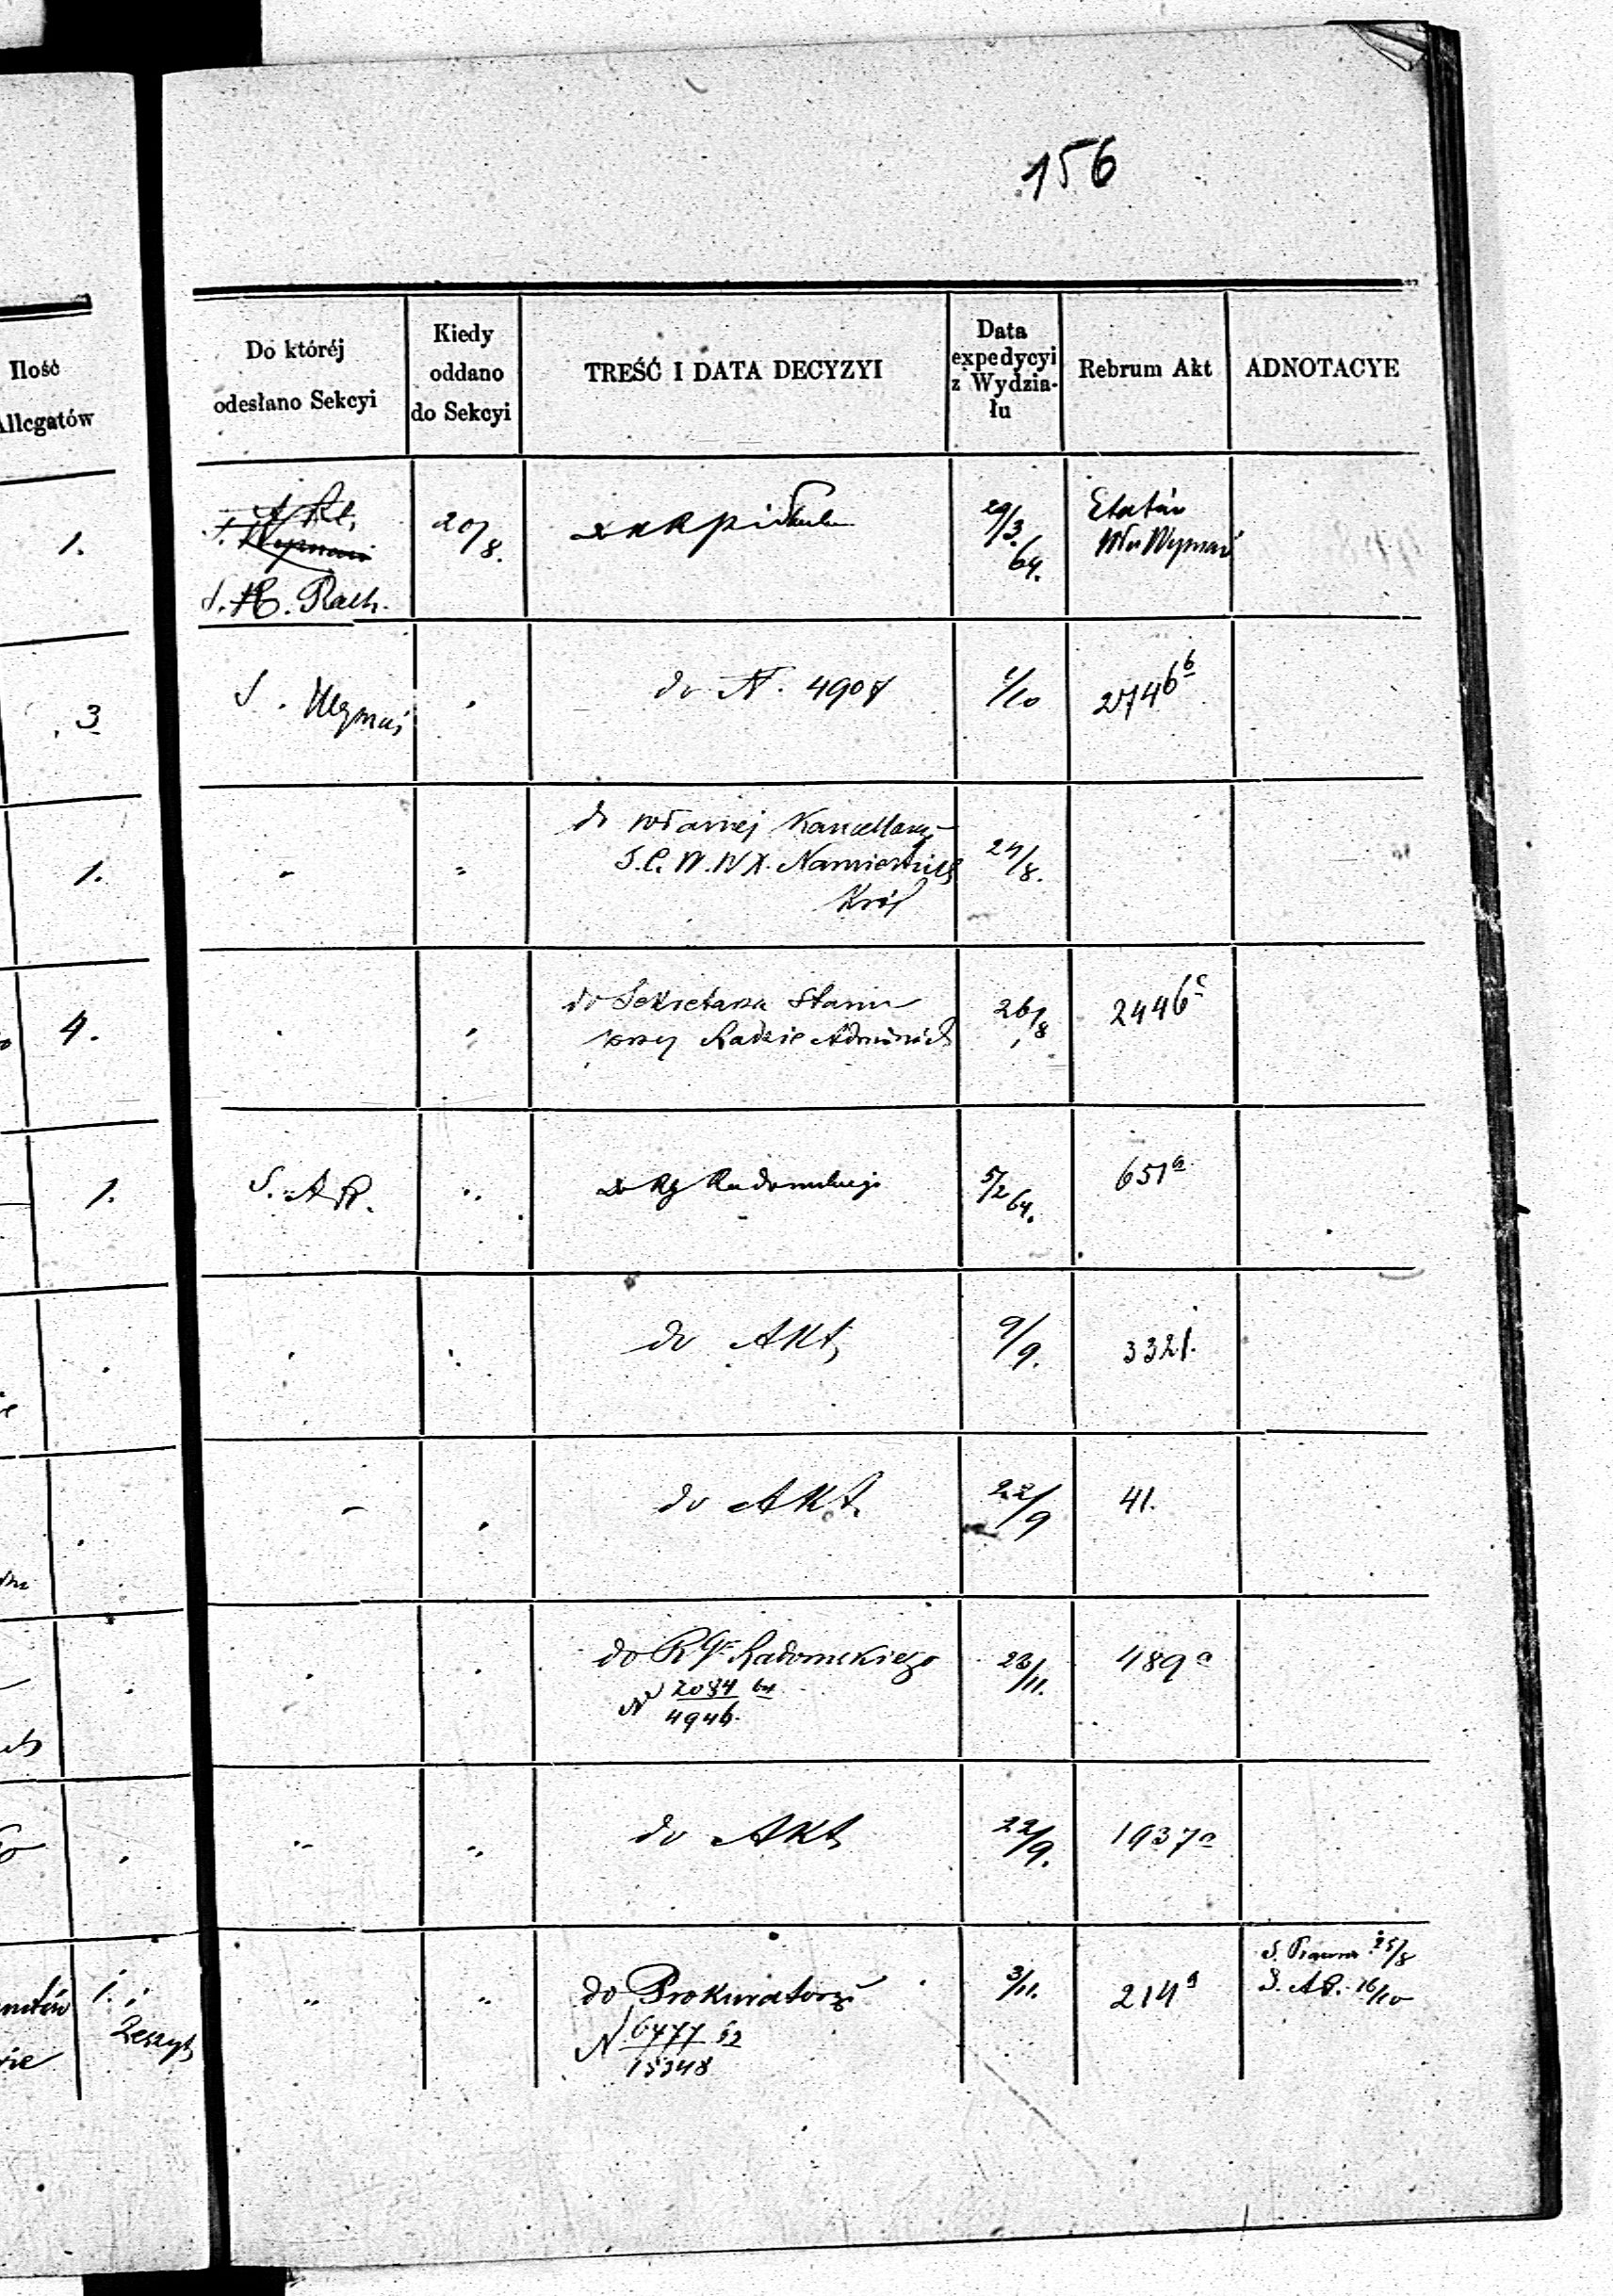 156
Ilość
Allegatów
Do któréj
odesłano Sekcyi
Kiedy
oddano
do Sekcyi
TREŚĆ I DATA DECYZYI
Data
expedycyi
z Wydzia-
łu
Rebrum Akt
ADNOTACYE
1.
S. Rach.
20/8.
29/3 64.
Etatów
3
S.
do N. 4907
1/10
2746 b
1.
do własnej Kancellaryi
J.C.W.W.X. Namiestnika
Król
24/8.
4.
do Sekretarza Stanu
przy Radzie Administ
26/8
2446 c
1.
S. A R.
do Rg Radomskiego
5/2 64.
651 a
do Akt
9/9.
3321.
do Akt.
22/9
41.
do R Gu Radomskiego
N 2034/4946 64
23/11.
489 a
do Akt
22/9.
1937 a
1.
Zeszyt
do Prokuratoryi
N 6477/15348 62
3/11.
214 a
S. Prawna 25/8
S. A R. 16/10